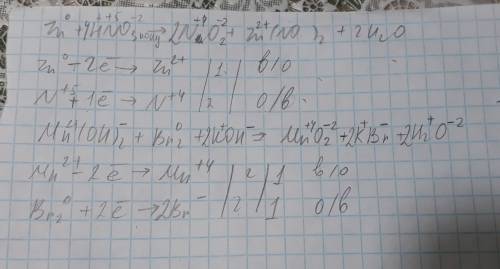 Zn⁰ + 4H⁺N⁺⁵O₃⁻² конц → 2N⁺⁴O₂⁻² + Zn²⁺(NO₃)₂ + 2H₂O
Zn⁰ - 2ē → Zn²⁺ | 1 | в/о
N⁺⁵ + 1ē → N⁺⁴ | 2 | о/в
Mn²⁺(OH)₂⁻ + Br₂⁰ + 2K⁺OH⁻ → Mn⁺⁴O₂⁻² + 2K⁺Br⁻ + 2H₂⁺O⁻²
Mn²⁺ - 2ē → Mn⁺⁴ | 2 | 1 в/о
Br₂⁰ + 2ē → 2Br⁻ | 2 | 1 о/в